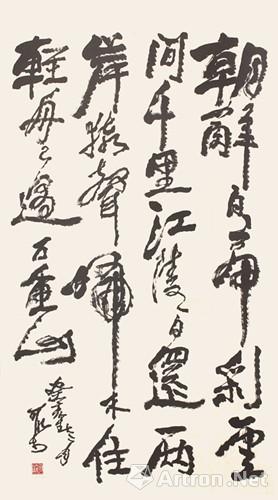 朝辭白帝彩雲
間千里江陵一日還兩
岸猿聲啼不住
輕舟已過万重山
Artron.Net